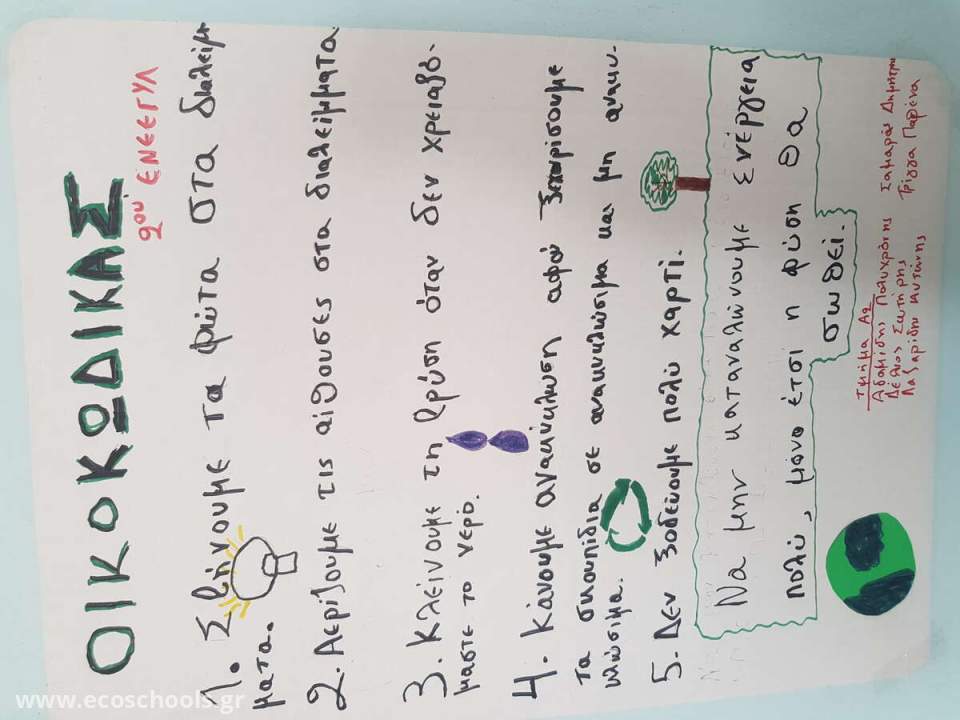 ΟΙΚΟΚΩΔΙΚΑΣ
2ου ΕΝΕΕΓΥΛ
1. Σβήνουμε τα φώτα στα διαλείμ
ματα.
2. Αερίζουμε τις αίθουσες στα διαλείμματα.
3. Κλείνουμε τη βρύση όταν δεν χρειαζό-
μαστε το νερό.
4. Κάνουμε ανακύκλωση αφού ξεχωρίσουμε
τα σκουπίδια σε ανακυκλώσιμα και μη ανακυ-
κλώσιμα.
5. Δεν ξοδεύουμε πολύ χαρτί.
Να μην καταναλώνουμε ενέργεια
πολύ, μόνο έτσι η φύση θα
σωθεί.
Τμήμα Α2
Αδαμίδης Πολυχρόνης
Δέλιος Σωτήρης
Λαζαρίδη Αντώνης
Σαμαρά Δημήτρα
Τρίγγα Παρθένα
www.ecoschools.gr